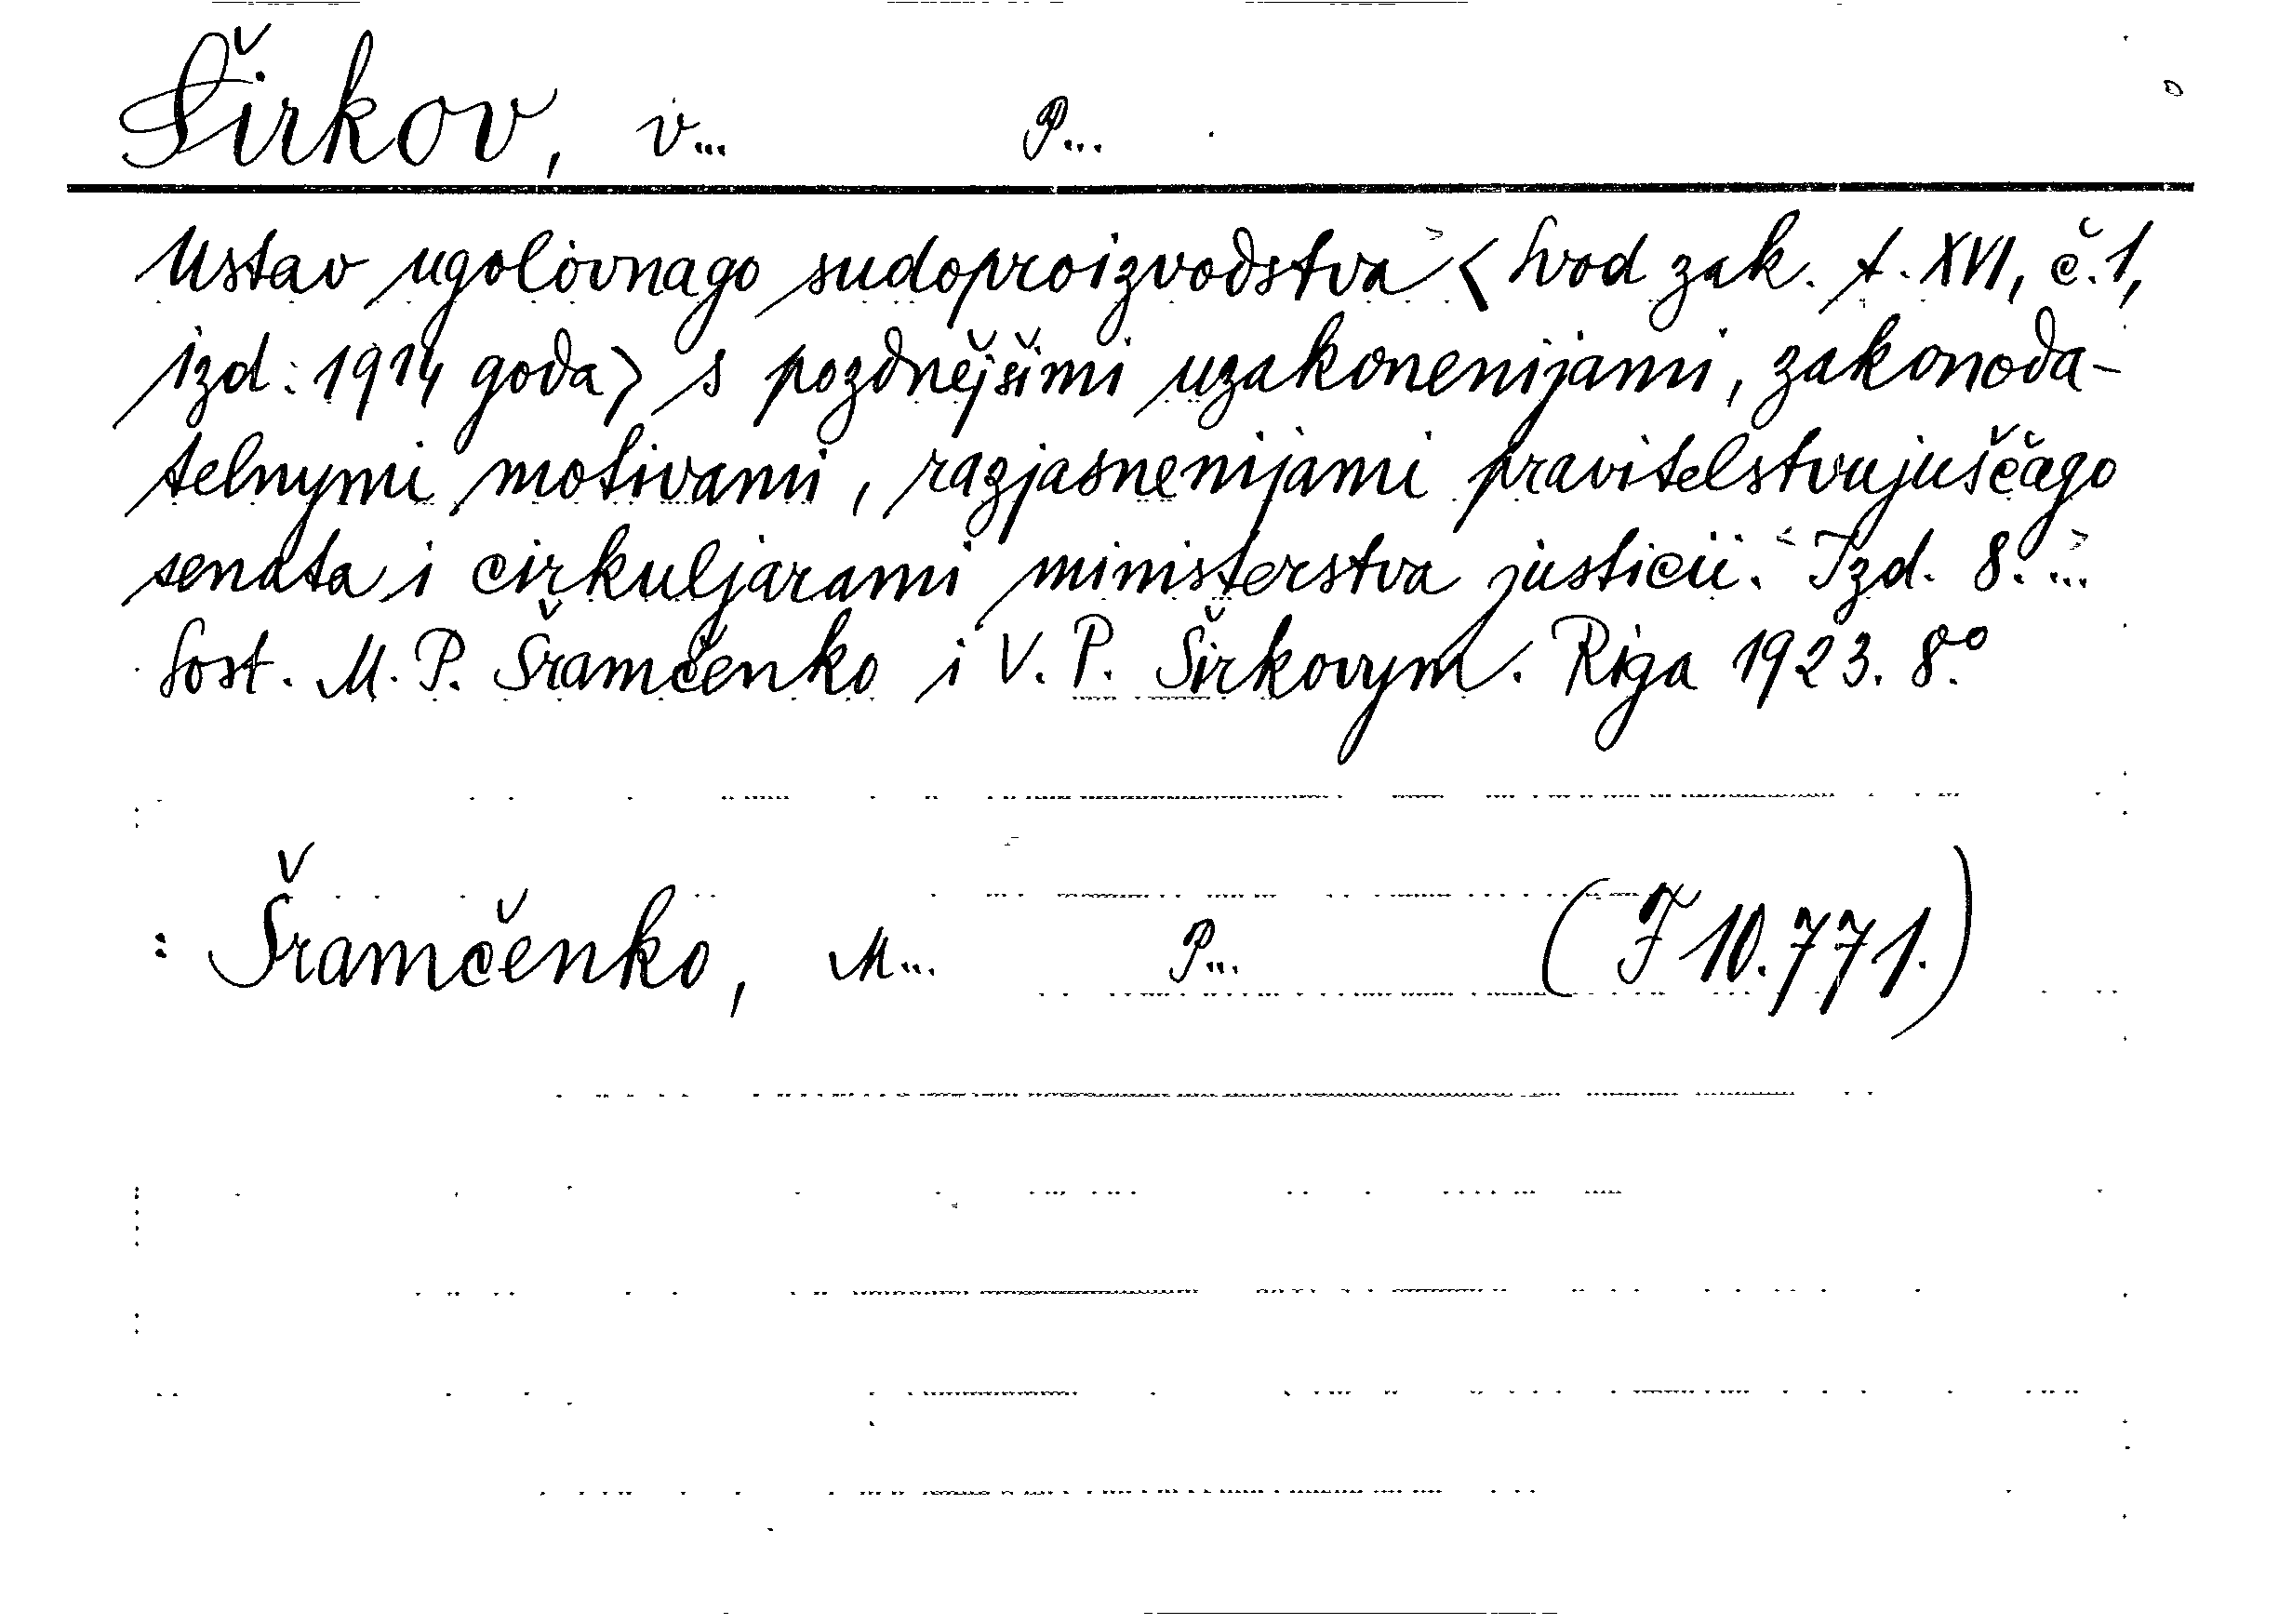 Širkov, V... P...
Ustav ugolovnago sudoproizvodstva <Svod zak. t. XVI, č. 1,
izd. 1914 goda> s pozdnějšimi uzakonenijami, zakonoda-
telnymi motivami, razjasnenijami pravitelstvujuščago
senata i cirkuljarami ministerstva justicii. Izd. 8. ...
Sost. M. P. Šramčenko i V. P. Širkovym. Riga 1923. 8°.
: Šramčenko, M... P... (F 10.771.)